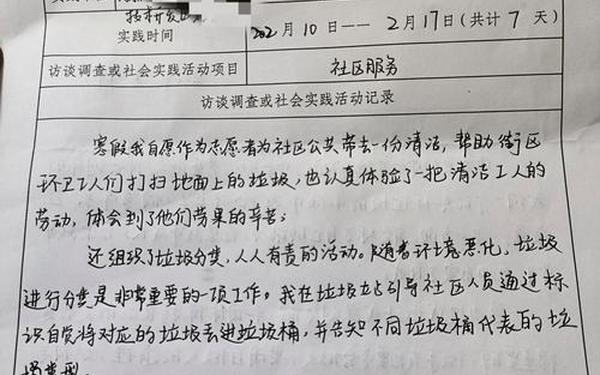 实践时间
2月10日——2月17日(共计7天)
访谈调查或社会实践活动项目
社区服务
访谈调查或社会实践活动记录
寒假我自愿作为志愿者为社区公共带去一份清洁,帮助街区
环卫工人们打扫地面上的垃圾,也认真体验了一把清洁工人的
劳动,体会到了他们劳累的辛苦;
还组织了垃圾分类,人人有责的活动。随着环境恶化,垃圾
进行分类是非常重要的一项工作。我在垃圾站引导社区人员通过标
识自觉将对应的垃圾丢进垃圾桶,并告知不同垃圾桶代表的垃
圾类型。